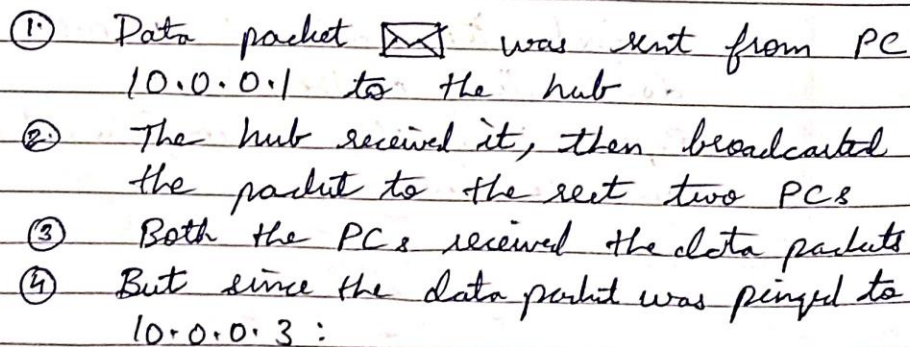 ① Data packet ✉ was sent from PC
10.0.0.1 to the hub.
② The hub received it, then broadcasted
the packet to the rest two PCs
③ Both the PCs received the data packets
④ But since the data packet was pinged to
10.0.0.3: